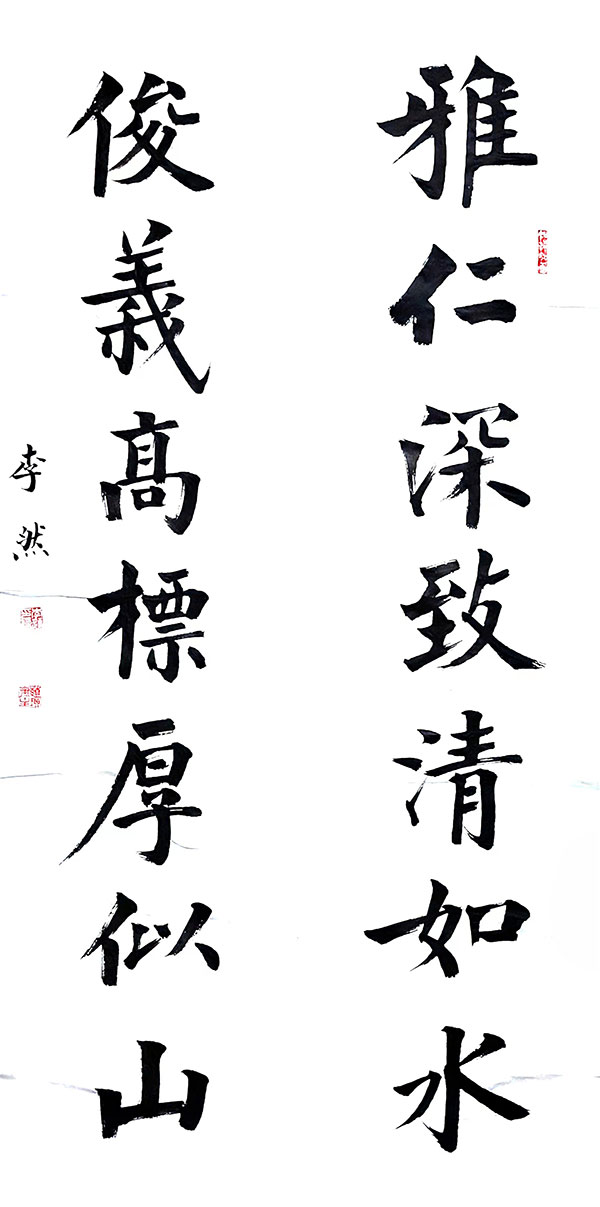 雅仁深致清如水
俊義髙標厚似山
李然